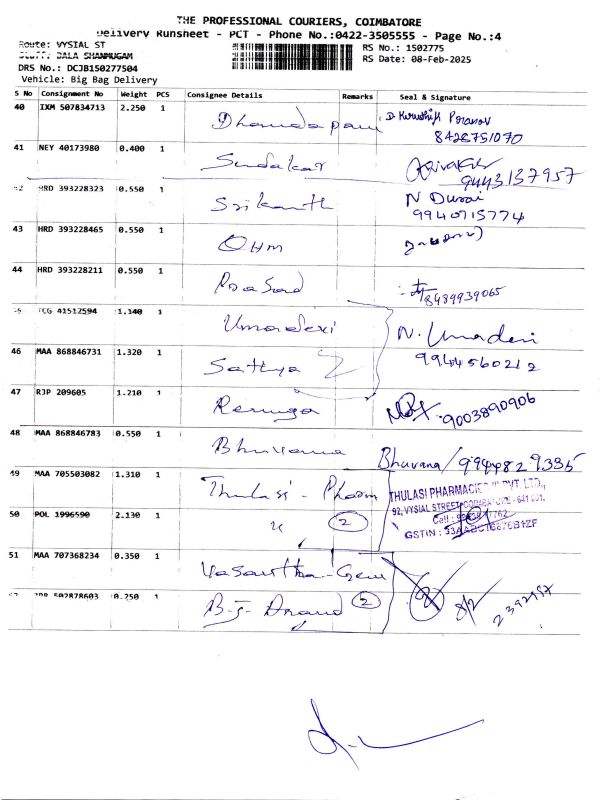 THE PROFESSIONAL COURIERS, COIMBATORE
Delivery Runsheet - PCT - Phone No.:0422-3505555 - Page No.:4
Route: VYSIAL ST
RS No.: 1502775
Staff: BALA SHANMUGAM
DRS No.: DCJB150277504
RS Date: 08-Feb-2025
Vehicle: Big Bag Delivery
S No Consignment No Weight PCS Consignee Details Remarks Seal & Signature
40 IXM 507834713 2.250 1 Dhandapani D
8428751070
41 NEY 40173980 0.400 1 Sudakar
9443137957
HRD 393228323 0.550 1 Srikanth N Durai
9940715774
43 HRD 393228465 0.550 1 OHM
44 HRD 393228211 0.550 1 Prasad
8489939065
41512594 1.140 1 Umadevi N. Umadevi
46 MAA 868846731 1.320 1 Sathya
9944560212
47 RJP 209605 1.210 1 Renuga 9003890906
48 MAA 868846783 0.550 1 Bhuvana Bhuvana/9944829335
49 MAA 705503082 1.310 1 Thulasi - Pharm
THULASI PHARMACIES PVT. LTD.,
92, VYSIAL STREET, COIMBATORE - 641 001.
50 POL 1996590 2.130 1 " 2
Cell :
GSTIN :
51 MAA 707368234 0.350 1 Vasantha Gem
502878603 0.250 1 B.J. Anand 2 8/2